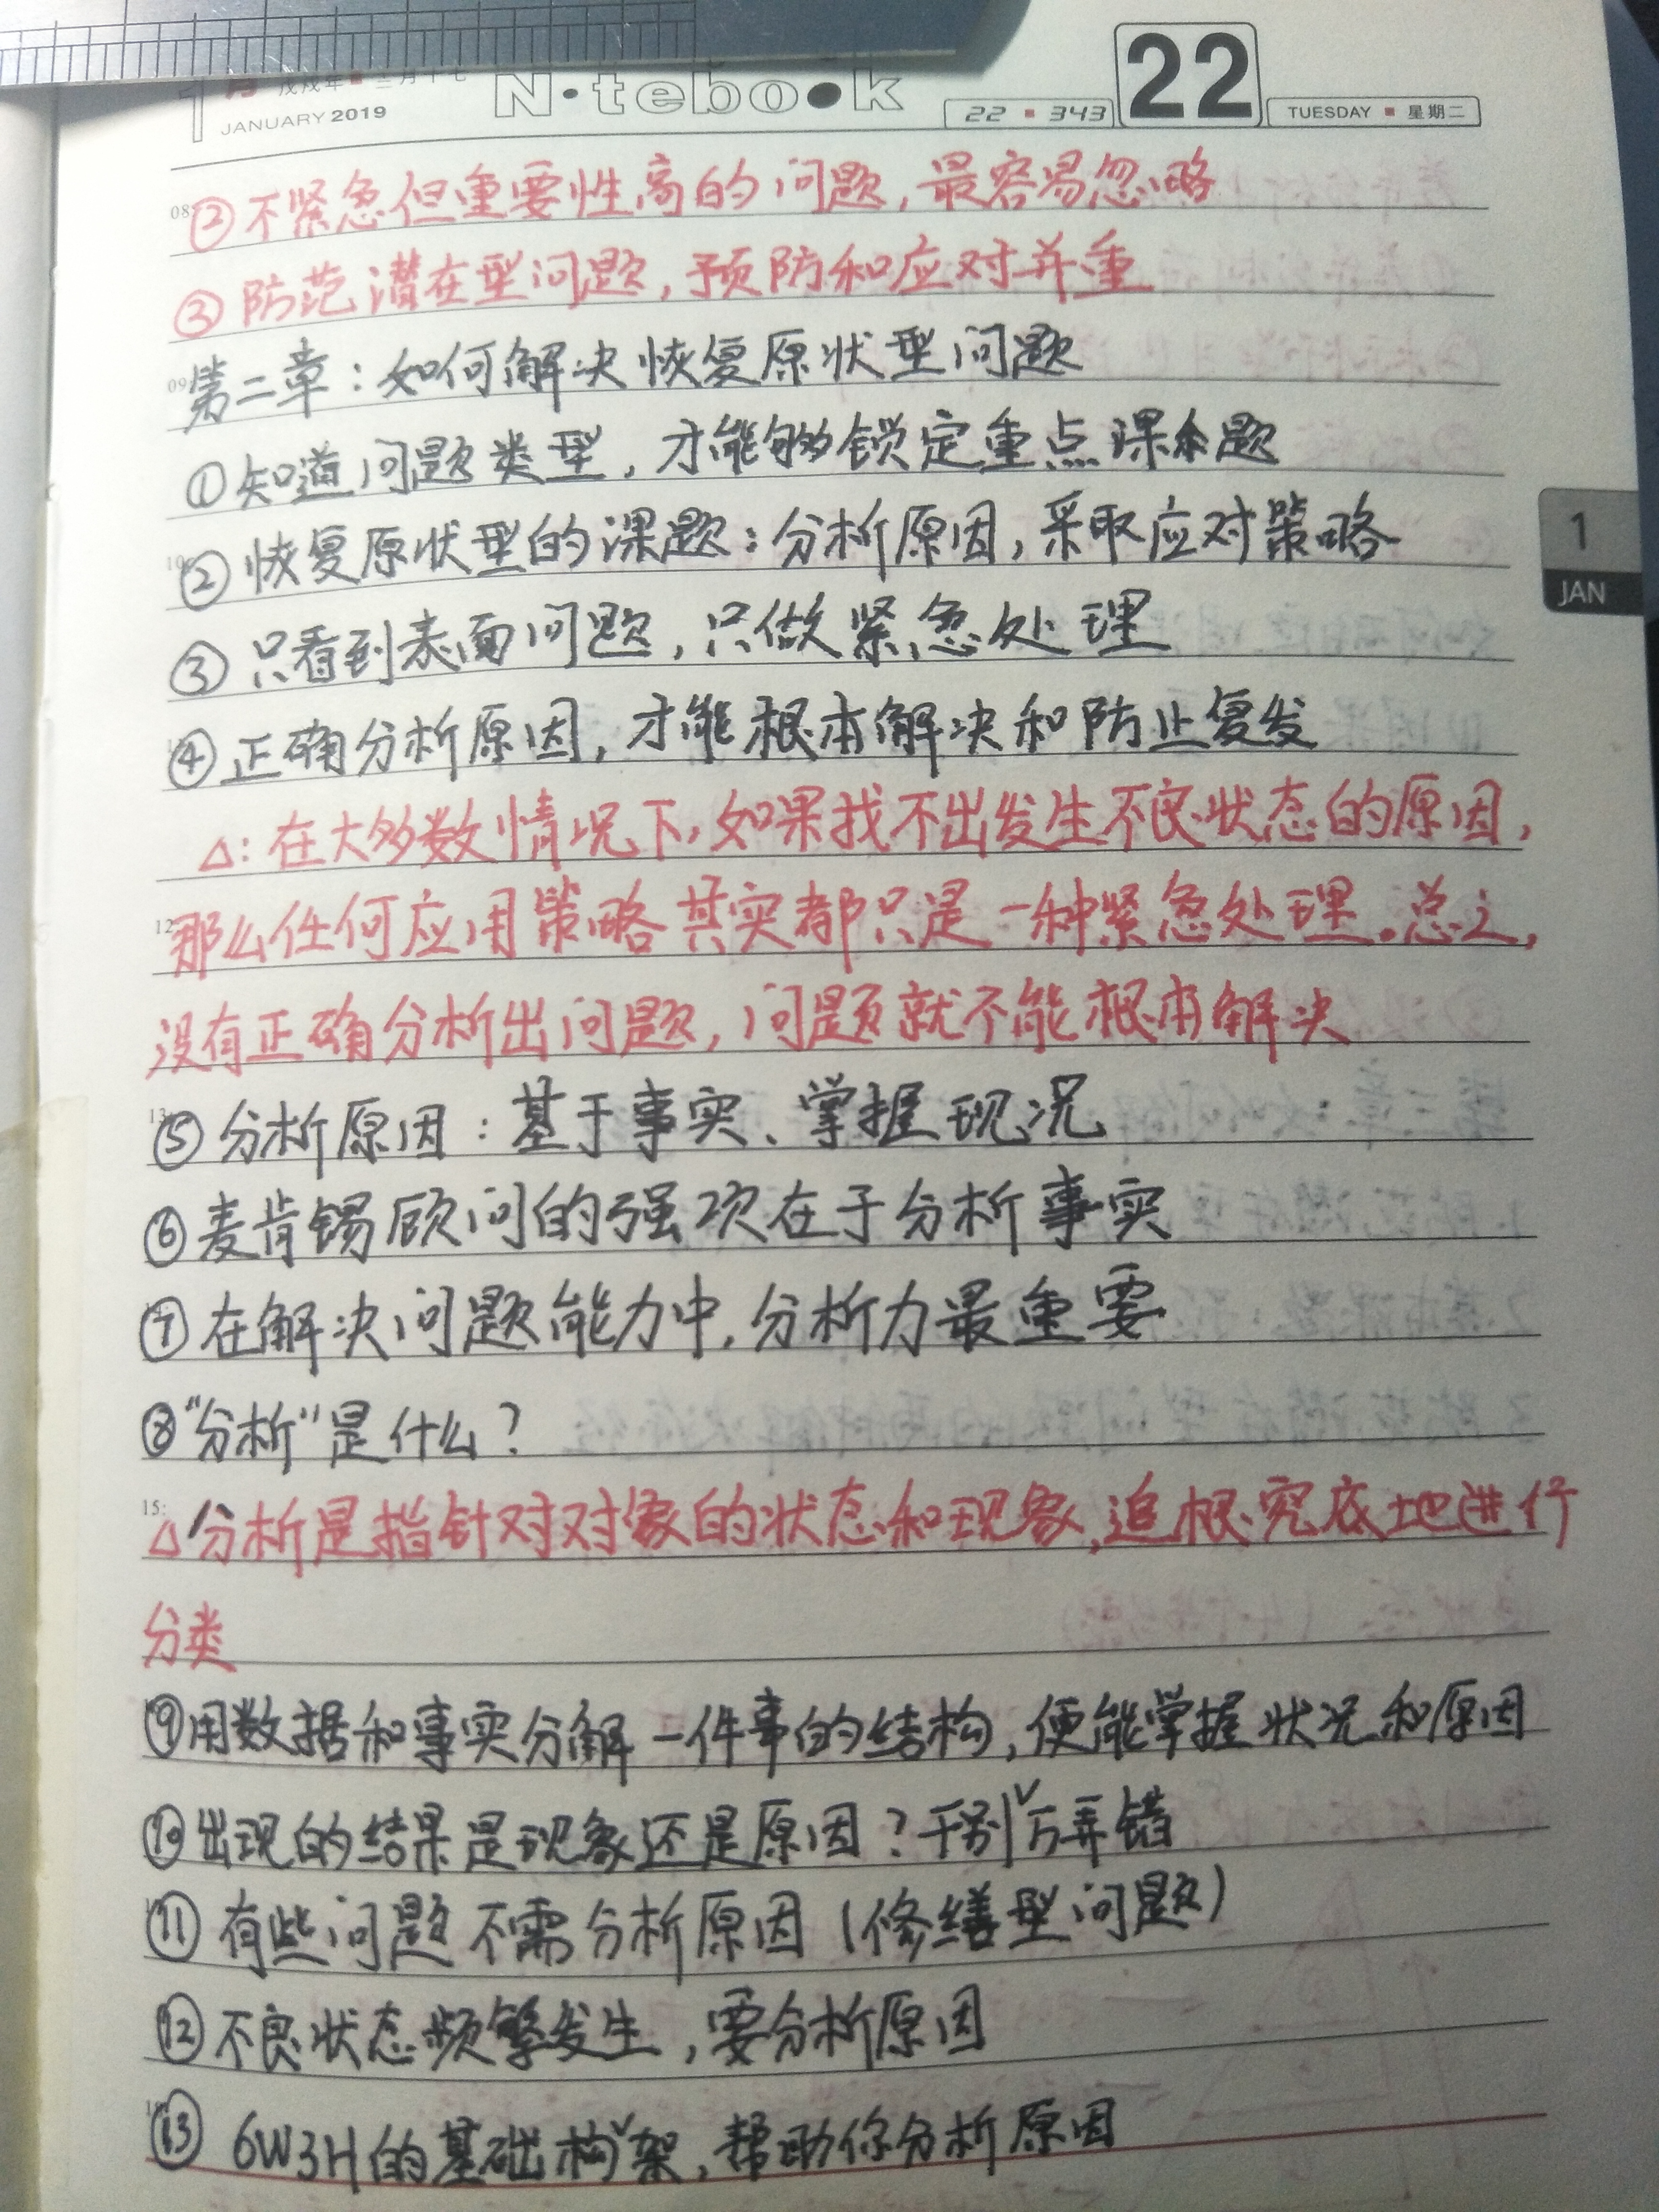 1月 戊戌年 十二月十七
JANUARY 2019
N·tebo●k
22 ▪ 343
22
TUESDAY ▪ 星期二
②不紧急但重要性高的问题,最容易忽略
③防范潜在型问题,预防和应对并重
第二章:如何解决恢复原状型问题
①知道问题类型,才能够锁定重点课题
②恢复原状型的课题:分析原因,采取应对策略
1
JAN
③只看到表面问题,只做紧急处理
④正确分析原因,才能根本解决和防止复发
△:在大多数情况下,如果找不出发生不良状态的原因,
那么任何应用策略其实都只是一种紧急处理。总之,
没有正确分析出问题,问题就不能根本解决
⑤分析原因:基于事实、掌握现况
⑥麦肯锡顾问的强项在于分析事实
⑦在解决问题能力中,分析力最重要
⑧“分析”是什么?
△分析是指针对对象的状态和现象,追根究底地进行
分类
⑨用数据和事实分解一件事的结构,便能掌握状况和原因
⑩出现的结果是现象还是原因?千万别弄错
⑪有些问题不需分析原因(修缮型问题)
⑫不良状态频繁发生,要分析原因
⑬6W3H的基础构架,帮助你分析原因